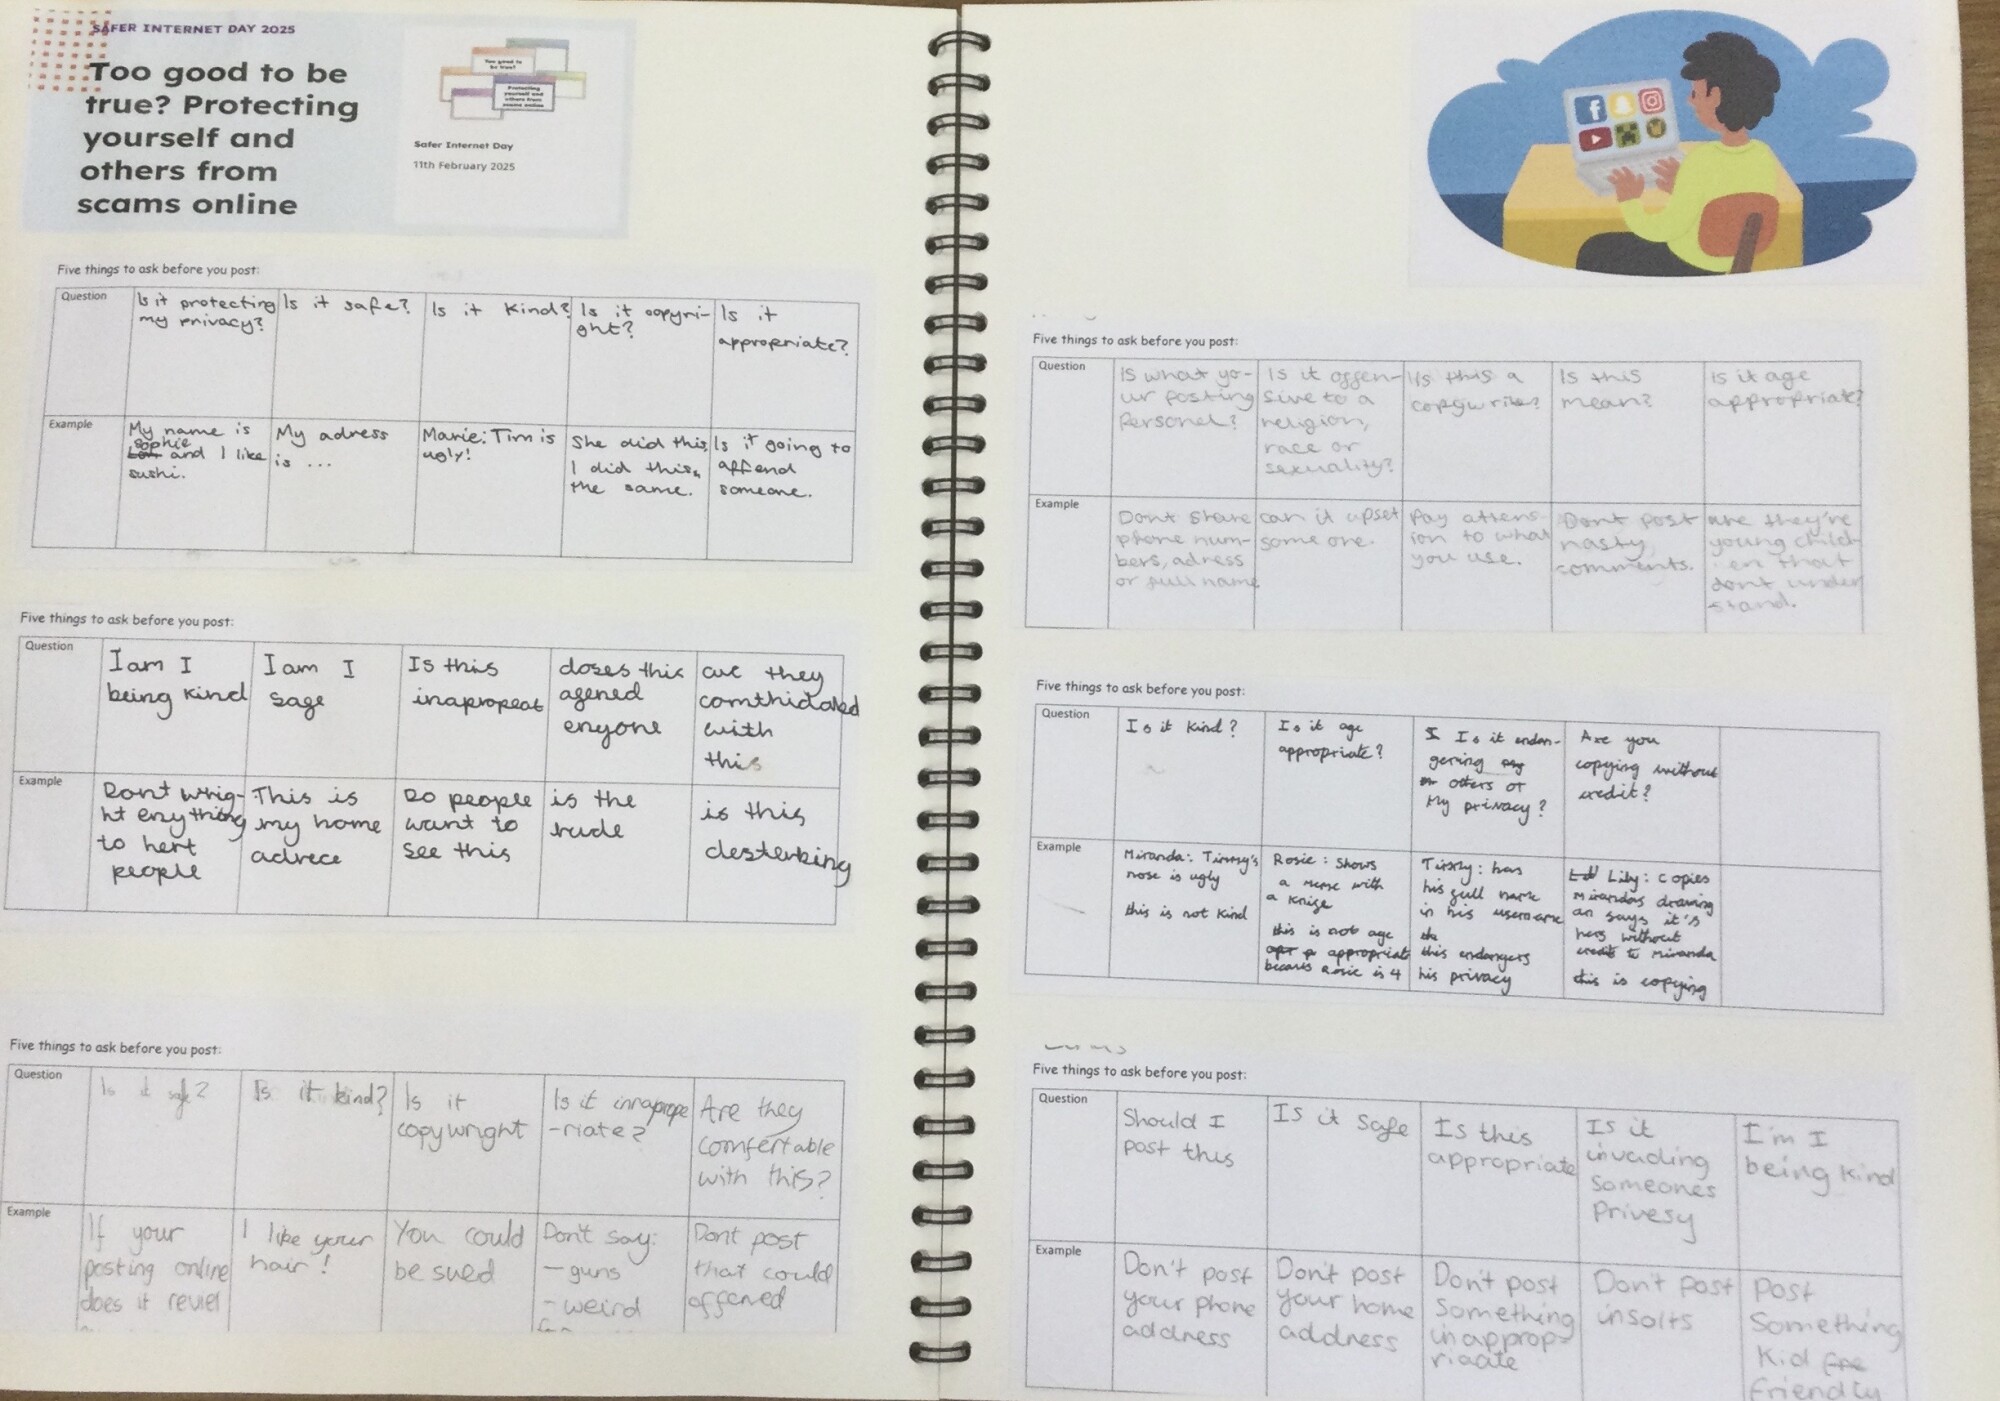 SAFER INTERNET DAY 2025
Too good to be
true? Protecting
yourself and
others from
scams online
Too good to be
true?
Protecting
yourself and
others from
scams online
Safer Internet Day
11th February 2025
Five things to ask before you post:
Question
Is it protecting
my privacy?
Is it safe?
Is it kind?
Is it copyri-
ght?
Is it
appropriate?
Example
My name is
sophie
and I like
sushi.
My adress
is ...
Marie: Tim is
ugly!
She did this,
I did this,
the same.
Is it going to
affend
someone.
Five things to ask before you post:
Question
I am I
being kind
I am I
sage
Is this
inapropeat
doses this
agened
enyone
are they
comthidabed
with
this
Example
Dont wrig-
ht enything
to hert
people
This is
my home
adrece
Do people
want to
see this
is the
rude
is this
desterbing
Five things to ask before you post:
Question
Is it safe?
Is it kind?
Is it
copywright
Is it innaprope
-riate?
Are they
comfertable
with this?
Example
If your
posting online
does it reviel
I like your
hair!
You could
be sued
Don't say:
- guns
- weird
Dont post
that could
offened
f
Five things to ask before you post:
Question
Is what yo-
ur posting
Personel?
Is it offen-
sive to a
religion,
race or
sexuality?
Is this a
copywrite?
Is this
mean?
Is it age
appropriate?
Example
Dont share
phone num-
bers, adress
or full name
can it upset
some one.
Pay attens-
ion to what
you use.
Dont post
nasty
comments.
are they're
young childr-
en that
dont under
stand.
Five things to ask before you post:
Question
Is it kind?
Is it age
appropriate?
Is it endan-
gering
others or
my privacy?
Are you
copying without
credit?
Example
Miranda: Timmy's
nose is ugly
this is not kind
Rosie: shows
a meme with
a knife
this is not age
appropriate
becaus Rosie is 4
Timmy: has
his full name
in his username
this endangers
his privacy
Lily: copies
Miranda's drawing
an says it's
hers without
credit to Miranda
this is copying
Five things to ask before you post:
Question
Should I
post this
Is it safe
Is this
appropriate
Is it
invading
someones
privesy
I'm I
being kind
Example
Don't post
your phone
address
Don't post
your home
address
Don't post
Something
inapprop-
riaate
Don't post
insolts
Post
Something
kid
friendly